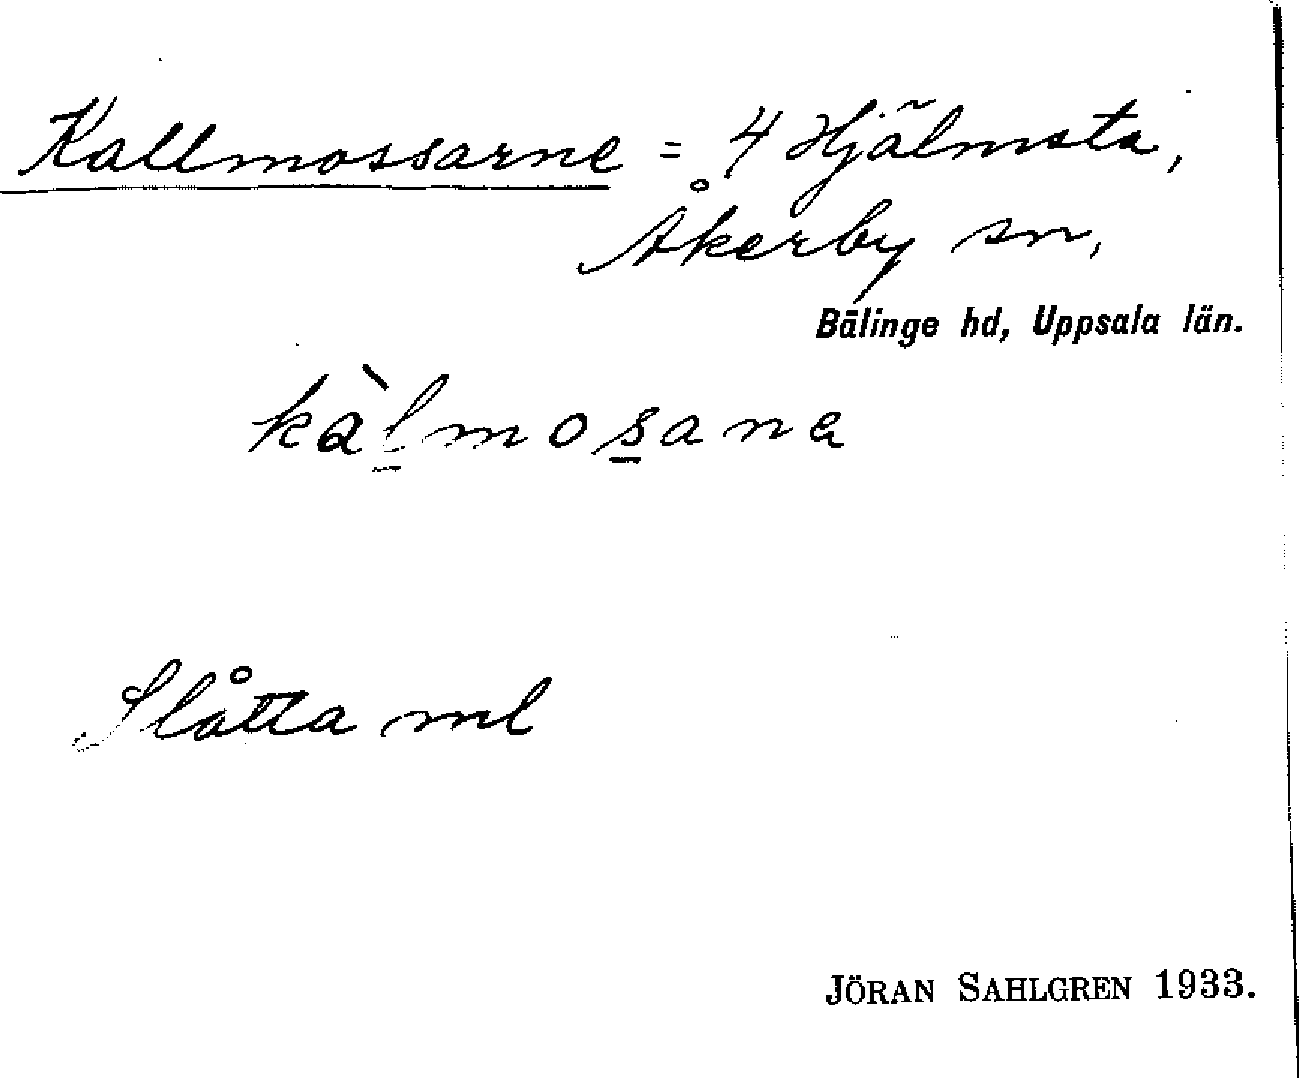 Kallmossarne = 4 Hjälmsta,
Åkerby sn,
Bälinge hd, Uppsala län.
kàlmosana
Slåtta ml
JÖRAN SAHLGREN 1933.